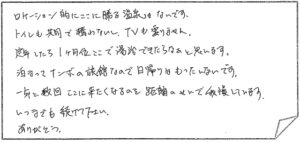 ロケーション的にここに勝る温泉はないです。
トイレも共同で構わないし、TVも要りません。
定年したら1ヶ月位ここで湯治できたらなぁと思います。
泊まってナンボの旅館なので日帰りはもったいないです。
一年に数回ここに来たくなるのを距離のせいで我慢しています。
いつまでも続けて下さい。
ありがとう。